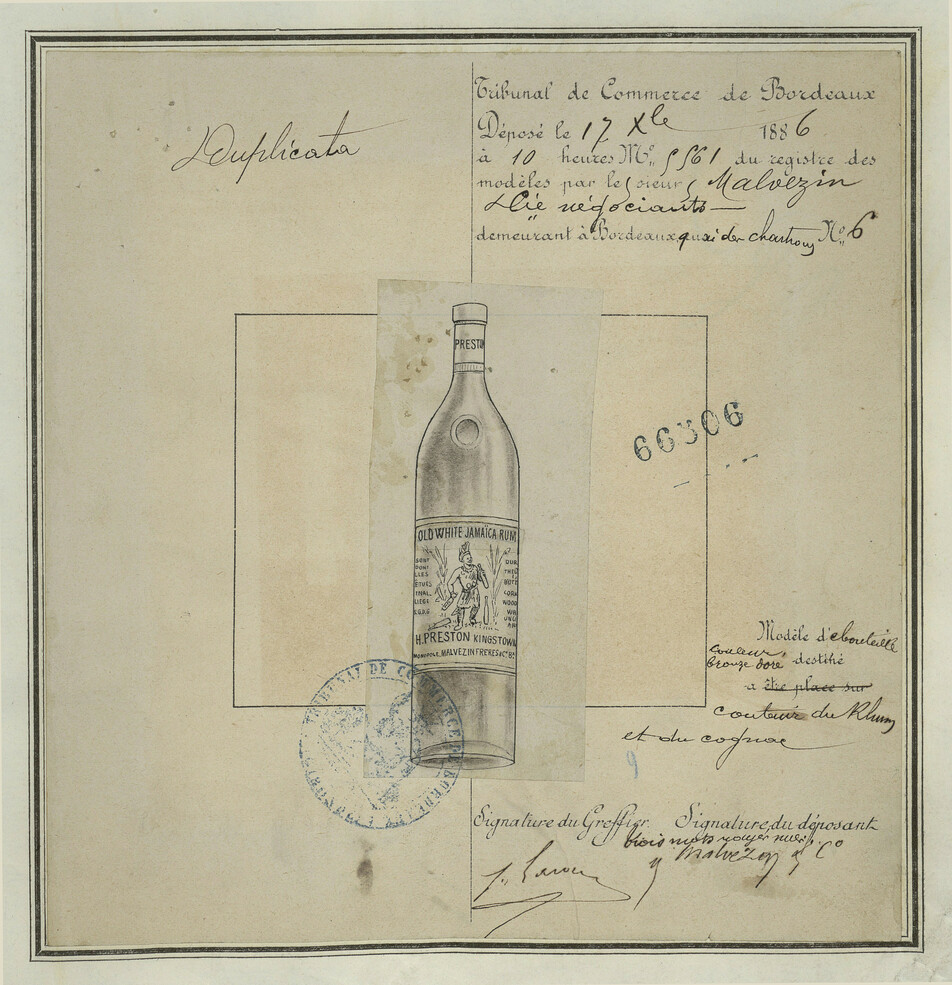 Duplicata
Tribunal de Commerce de Bordeaux
Déposé le 17 Xbre 1886
à 10 heures No 5561 du registre des
modèles par les sieurs Malvezin
& Cie négociants
demeurant à Bordeaux, quai des chartrons No 6
66306
PRESTON
OLD WHITE JAMAÏCA RUM
H. PRESTON KINGSTOWN
MONOPOLE MALVEZIN FRERES & Cº Bx
Modèle de bouteille
couleur,
bronze doré destiné
à être placé sur
contenir du Rhum
et du cognac
9
TRIBUNAL DE COMMERCE DE BORDEAUX
Signature du Greffier. Signature du déposant
trois mots rayés nuls.
Malvezin & Co